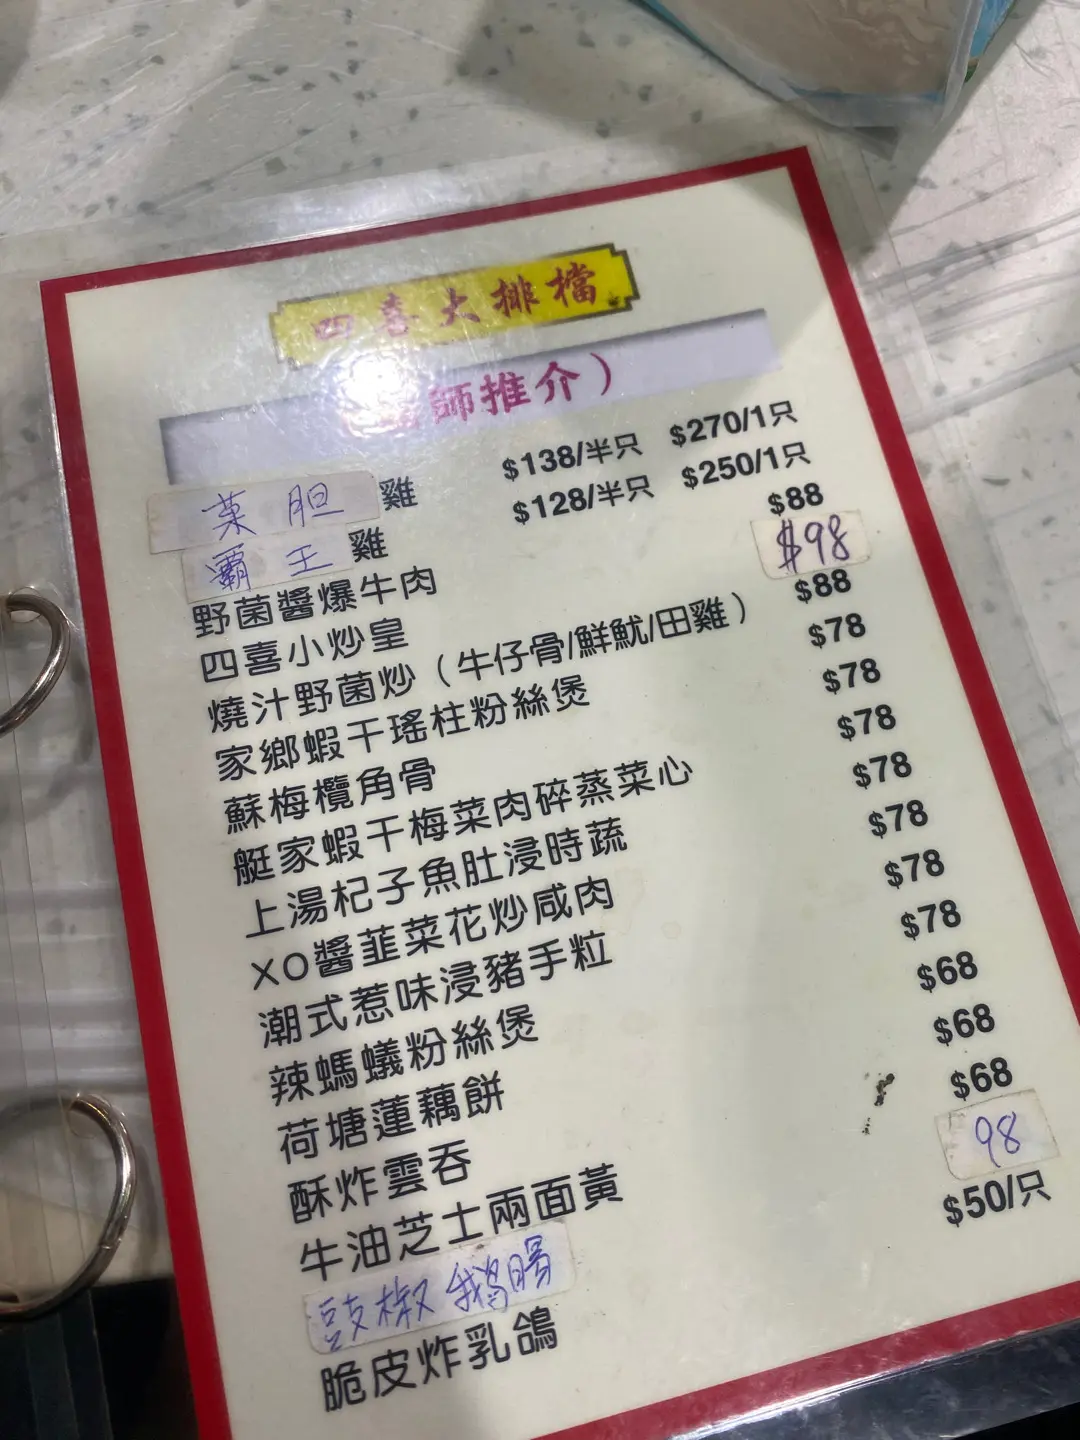 四喜大排檔
師推介）
菜胆雞 $138/半只 $270/1只
霸王雞 $128/半只 $250/1只
野菌醬爆牛肉 $88
四喜小炒皇 $98
燒汁野菌炒（牛仔骨/鮮魷/田雞） $88
家鄉蝦干瑤柱粉絲煲 $78
蘇梅欖角骨 $78
艇家蝦干梅菜肉碎蒸菜心 $78
上湯杞子魚肚浸時蔬 $78
XO醬韮菜花炒咸肉 $78
潮式惹味浸豬手粒 $78
辣螞蟻粉絲煲 $78
荷塘蓮藕餅 $68
酥炸雲吞 $68
牛油芝士兩面黃 $68
豉椒鵝腸 98
脆皮炸乳鴿 $50/只